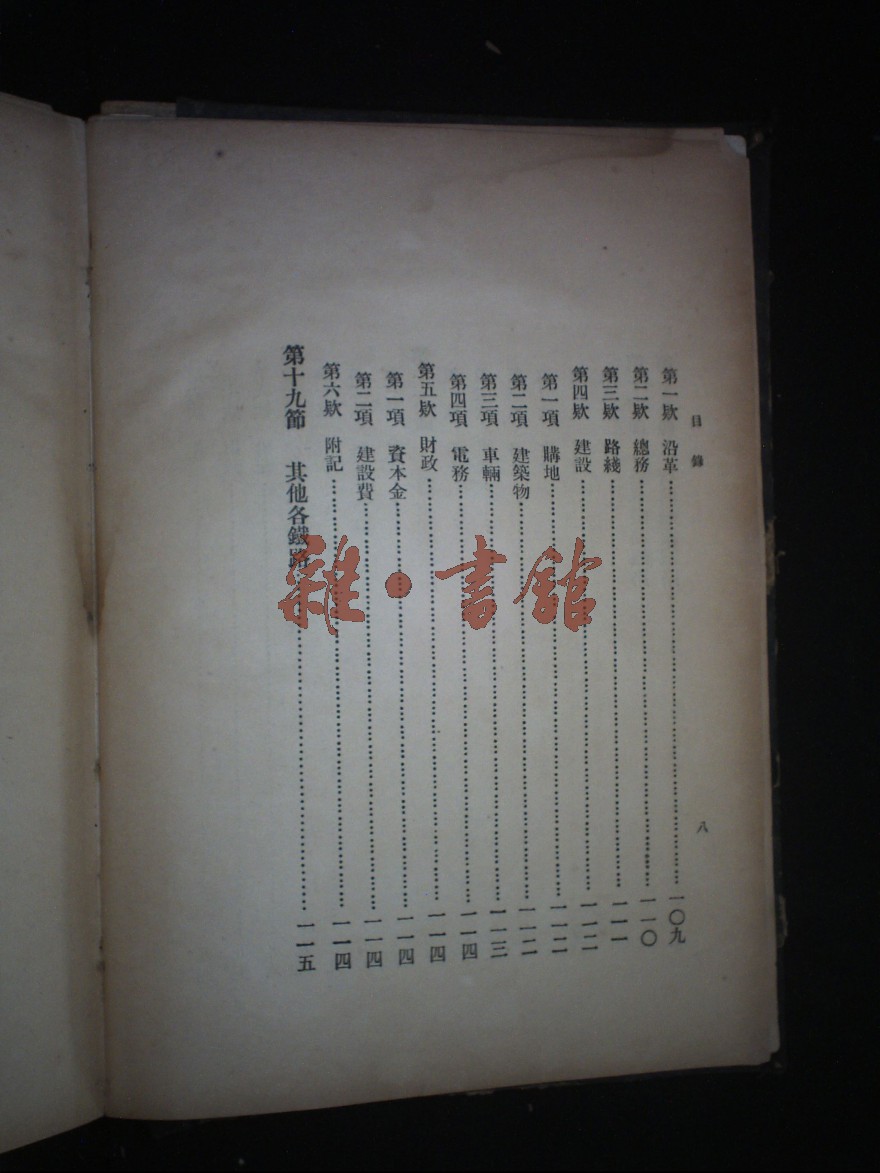 目錄
八
第一欵 沿革……一〇九
第二欵 總務……一一〇
第三欵 路綫……一一一
第四欵 建設……一一二
第一項 購地……一一二
第二項 建築物……一一二
第三項 車輛……一一三
第四項 電務……一一四
第五欵 財政……一一四
第一項 資本金……一一四
第二項 建設費……一一四
第六欵 附記……一一四
第十九節 其他各鐵路……一一五
雜·書館